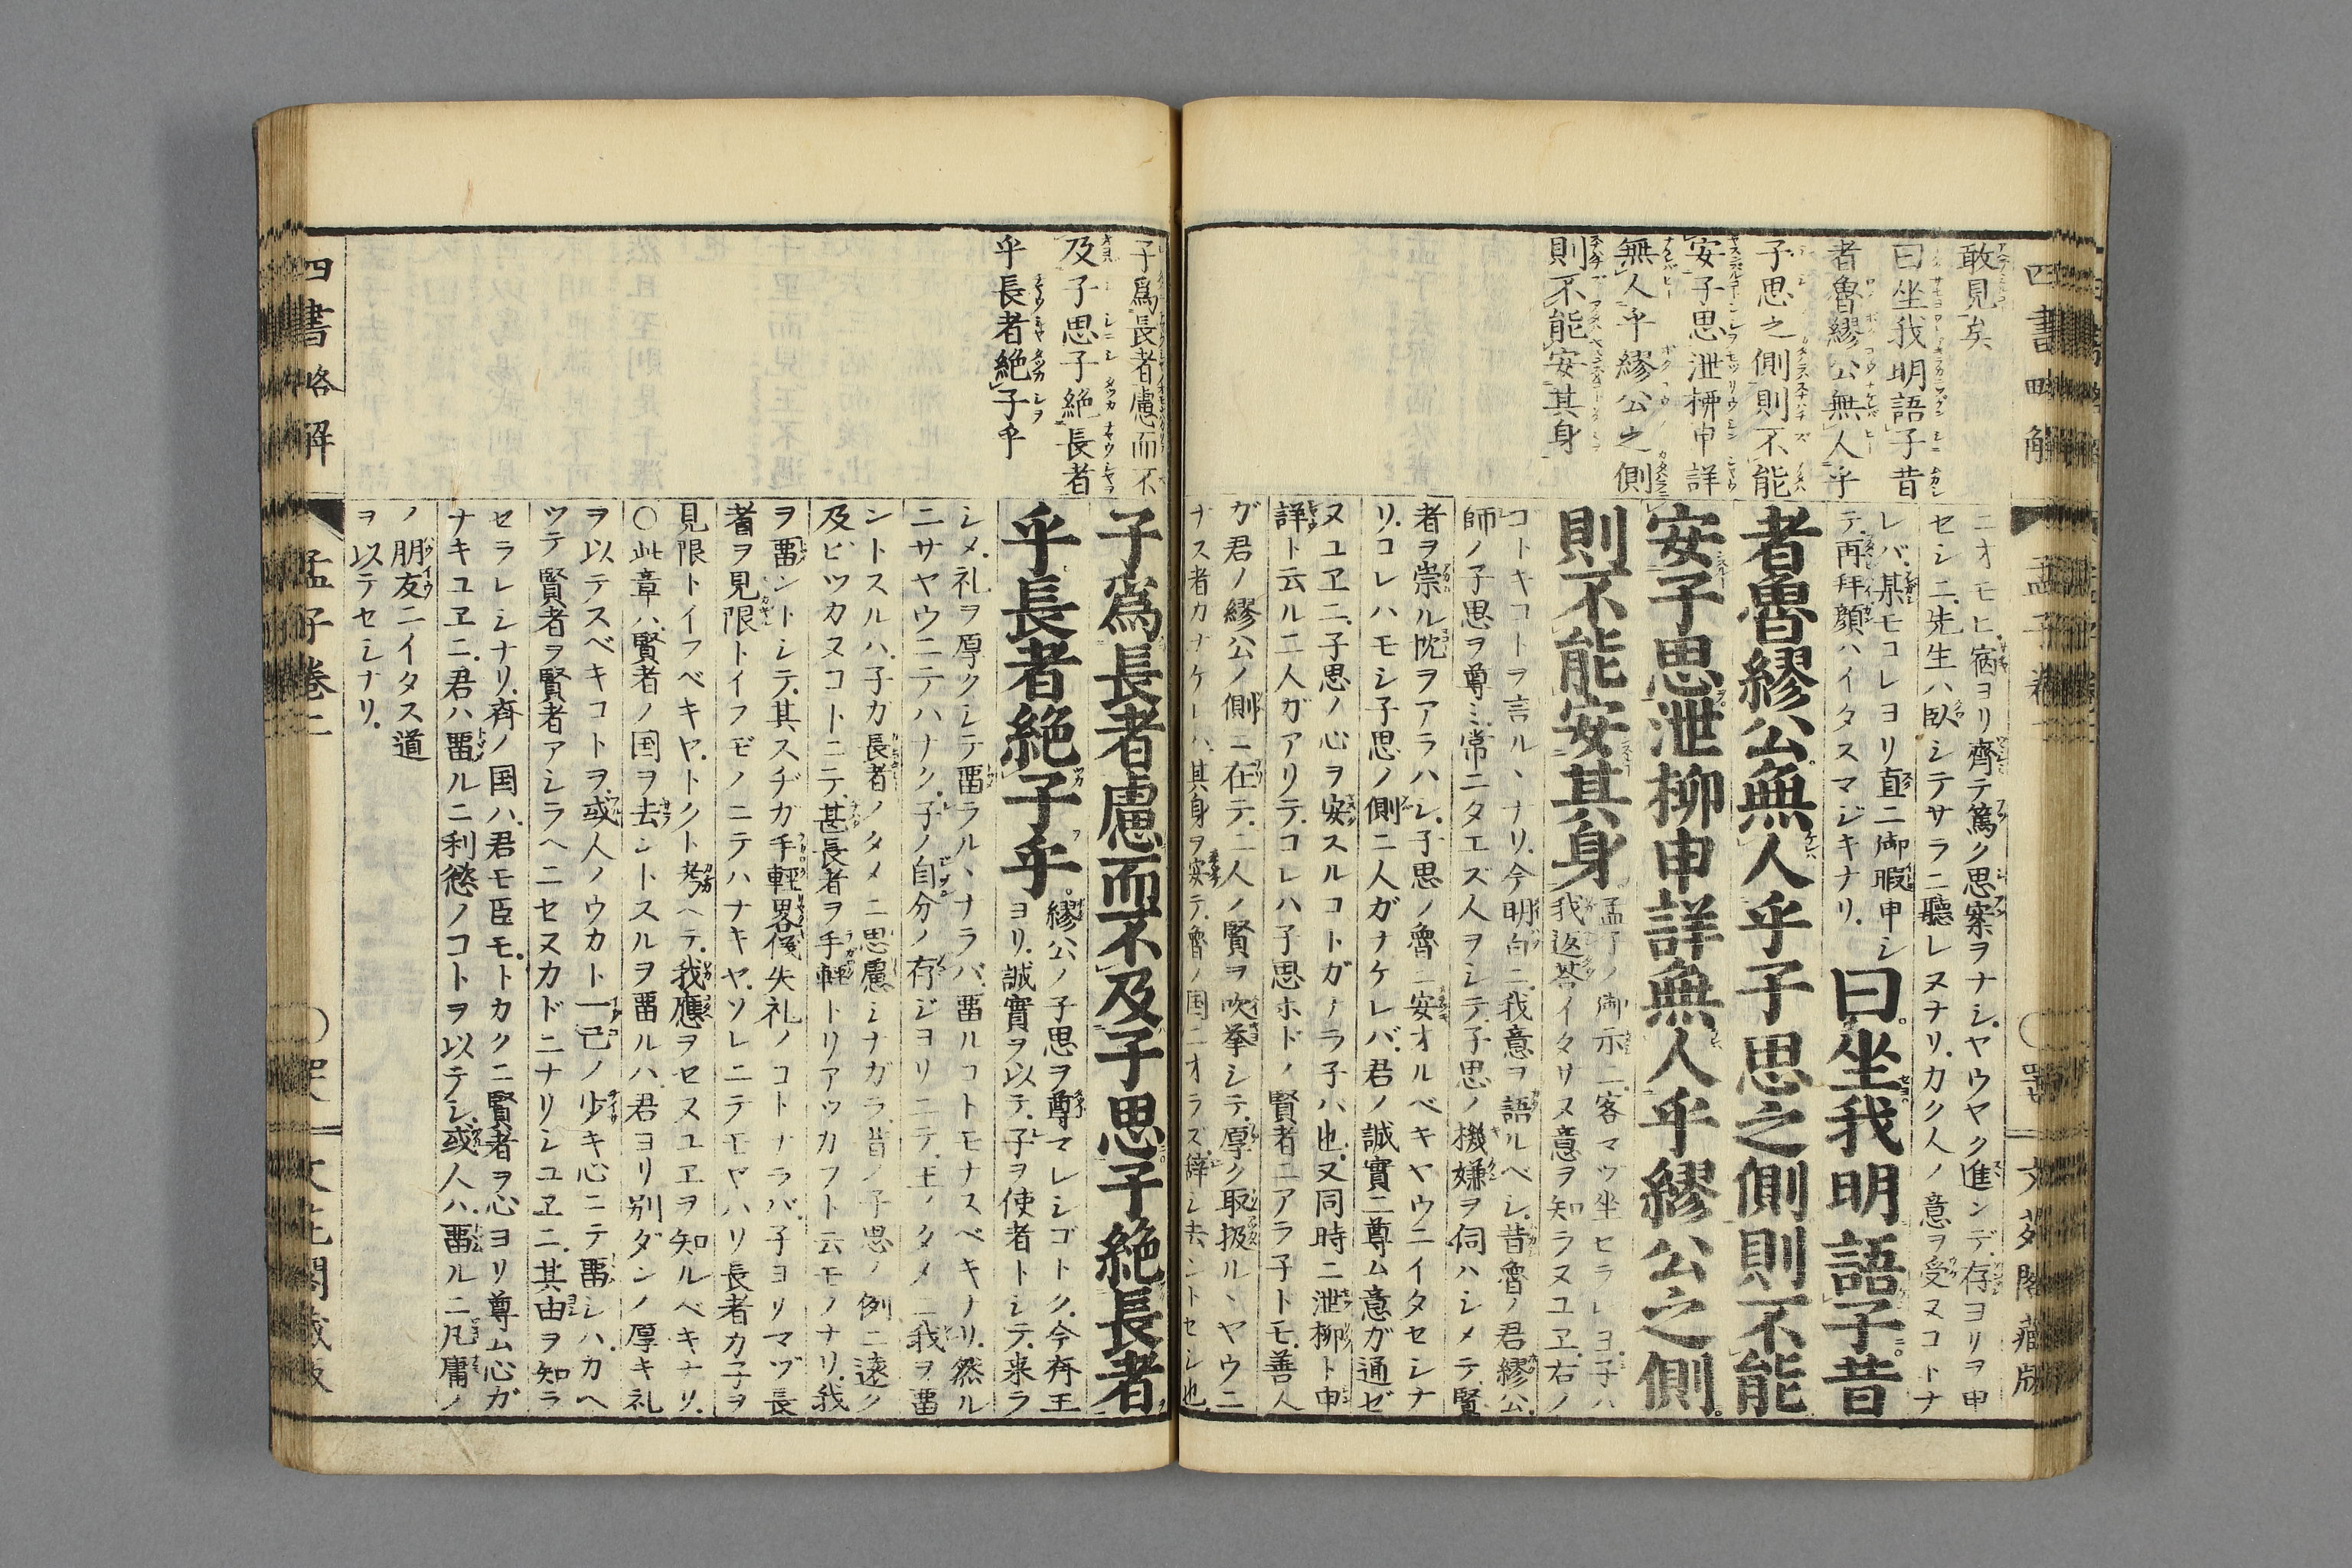 四書略解
敢見矣
曰坐我明語子昔
者魯繆公無人乎
子思之側則不能
安子思泄柳申詳
無人乎繆公之側
則不能安其身
ニオモヒ宿ヨリ齊テ篤ク思案ヲナシヤウヤク進ンデ存ヨリヲ申
セシニ先生ハ臥シテサラニ聽レヌナリカク人ノ意ヲ受ヌコトナ
レバ某モコレヨリ直ニ御暇申シ
テ再拜顔ハイタスマジキナリ
曰坐我明語子昔
者魯繆公無人乎子思之側則不能
安子思泄柳申詳無人乎繆公之側
則不能安其身
孟子ノ御示ニ客マツ坐セラレヨ子ハ
我返荅イタサヌ意ヲ知ラヌユヱ右ノ
コトキコトヲ言ルヽナリ今明白ニ我意ヲ語ルベシ昔魯ノ君繆公
師ノ子思ヲ尊ミ常ニタエズ人ヲシテ子思ノ機嫌ヲ伺ハシメテ賢
者ヲ崇ル忱ヲアラハシ子思ノ魯ニ安オルベキヤウニイタセシナ
リコレハモシ子思ノ側ニ人ガナケレバ君ノ誠實ニ尊ム意ガ通ゼ
ヌユヱニ子思ノ心ヲ安スルコトガナラ子ハ也又同時ニ泄柳ト申
詳ト云ル二人ガアリテコレハ子思ホドノ賢者ニアラ子トモ善人
ガ君ノ繆公ノ側ニ在テ二人ノ賢ヲ吹挙シテ厚ク取扱ルヽヤウニ
ナス者カナケレハ其身ヲ安テ魯ノ国ニオラズ辞シ去ントセシ也
子爲長者慮而不
及子思子絶長者
乎長者絶子乎
子爲長者慮而不及子思子絶長者
乎長者絶子乎
繆公ノ子思ヲ尊マレシゴトク今齊王
ヨリ誠實ヲ以テ子ヲ使者トシテ来ラ
シメ礼ヲ厚クシテ畱ラルヽナラバ畱ルコトモナスベキナリ然ル
ニサヤウニテハナク子ノ自分ノ存ジヨリニテ王ノタメニ我ヲ畱
ントスルハ子カ長者ノタメニ思慮シナガラ昔ノ子思ノ例ニ遠ク
及ビツカヌコトニテ甚長者ヲ手軽トリアツカフト云モノナリ我
ヲ畱ントシテ其スヂガ手軽畧儀失礼ノコトナラバ子ヨリマヅ長
者ヲ見限トイフモノニテハナキヤソレニテモヤハリ長者カ子ヲ
見限トイフベキヤトクト考ヘテ我應ヲセヌユヱヲ知ルベキナリ
〇此章ハ賢者ノ国ヲ去ントスルヲ畱ルハ君ヨリ別ダンノ厚キ礼
ヲ以テスベキコトヲ或人ノウカト一己ノ少キ心ニテ畱シハカヘ
ツテ賢者ヲ賢者アシラヘニセヌカドニナリシユヱニ其由ヲ知ラ
セラレシナリ齊ノ国ハ君モ臣モトカクニ賢者ヲ心ヨリ尊ム心ガ
ナキユヱニ君ハ畱ルニ利慾ノコトヲ以テシ或人ハ畱ルニ凡庸ノ
ノ朋友ニイタス道
ヲ以テセシナリ
四書略解
孟子巻二